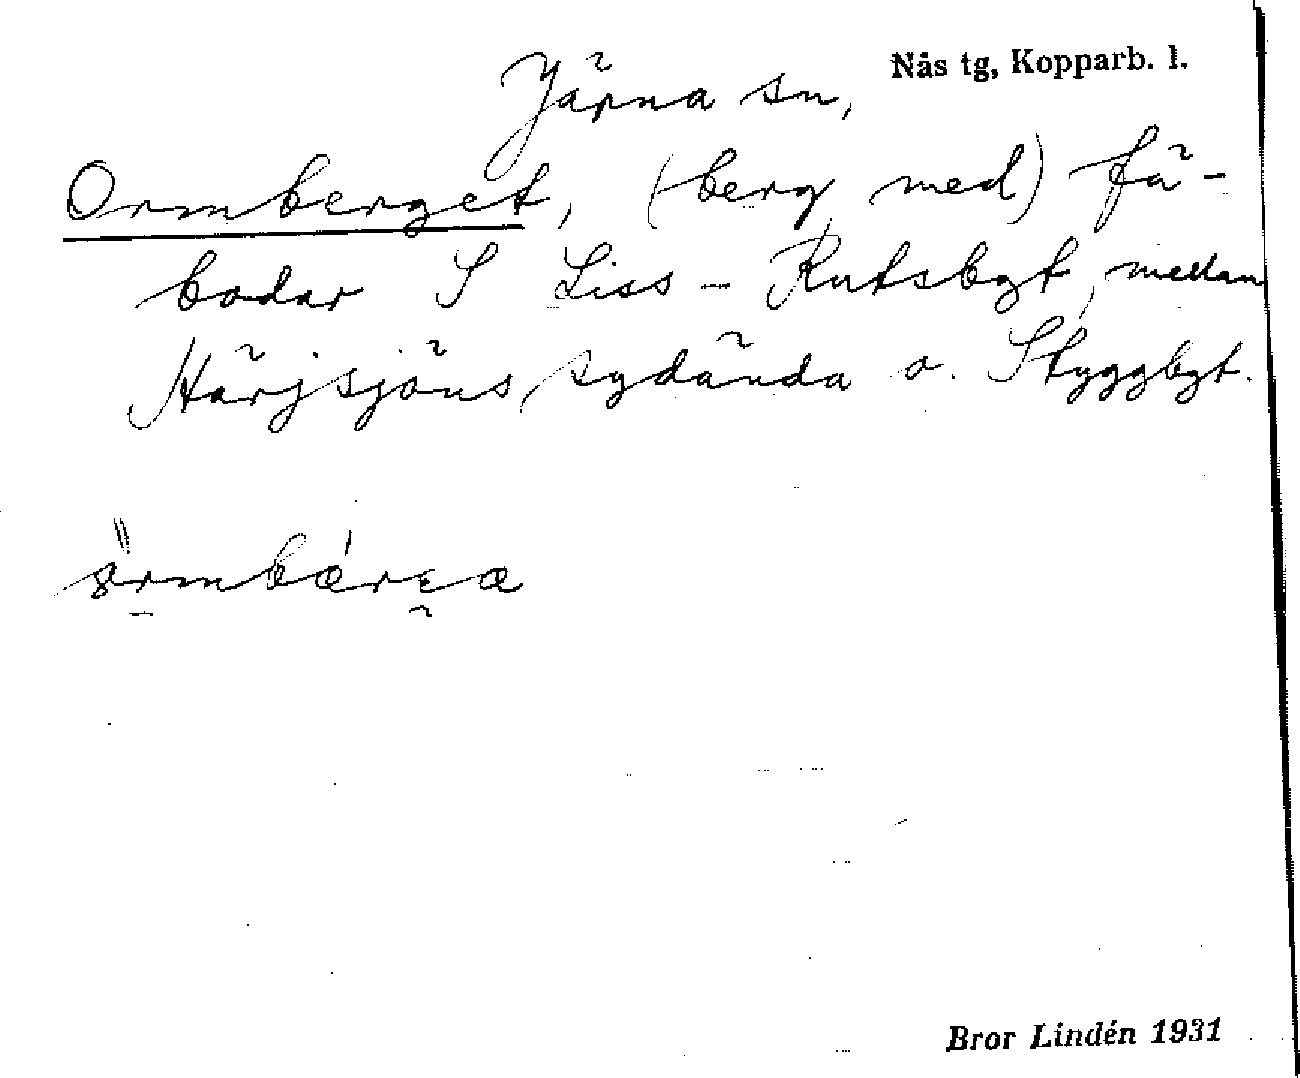 Nås tg, Kopparb. l.
Järna sn,
Ormberget, (berg med) fä-
bodar S Liss-Rutsbgt, medan
Härjsjöns sydända o. Styggbgt.
Bror Lindén 1931